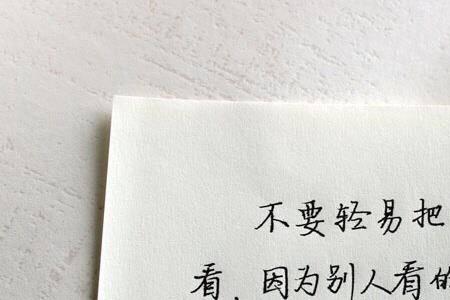 不要轻易把
看，因为别人看的